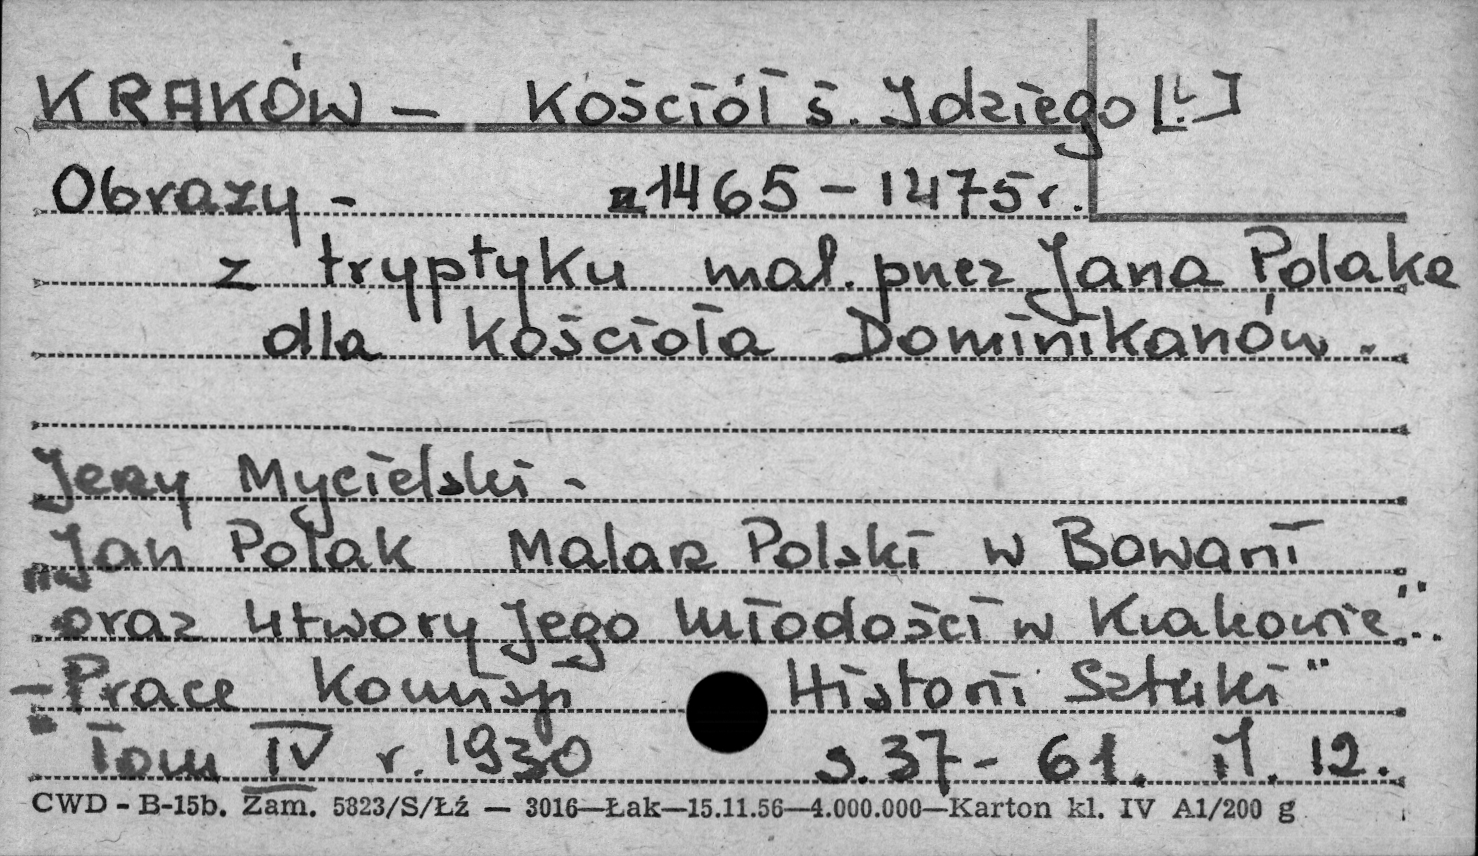 KRAKÓW – Kościół ś. Idziego [!]
Obrazy - z 1465 – 1475 r.
z tryptyku mal. przez Jana Polaka
dla kościoła Dominikanów.
Jerzy Mycielski -
Jan Polak Malarz Polski w Bawarii
oraz utwory jego młodości w Krakowie".
– Prace Komisji Historii Sztuki"
Tom IV r. 1930 s. 37 - 61. il. 12.
CWD - B-15b. Zam. 5823/S/Łź — 3016—Łak—15.11.56—4.000.000—Karton kl. IV A1/200 g